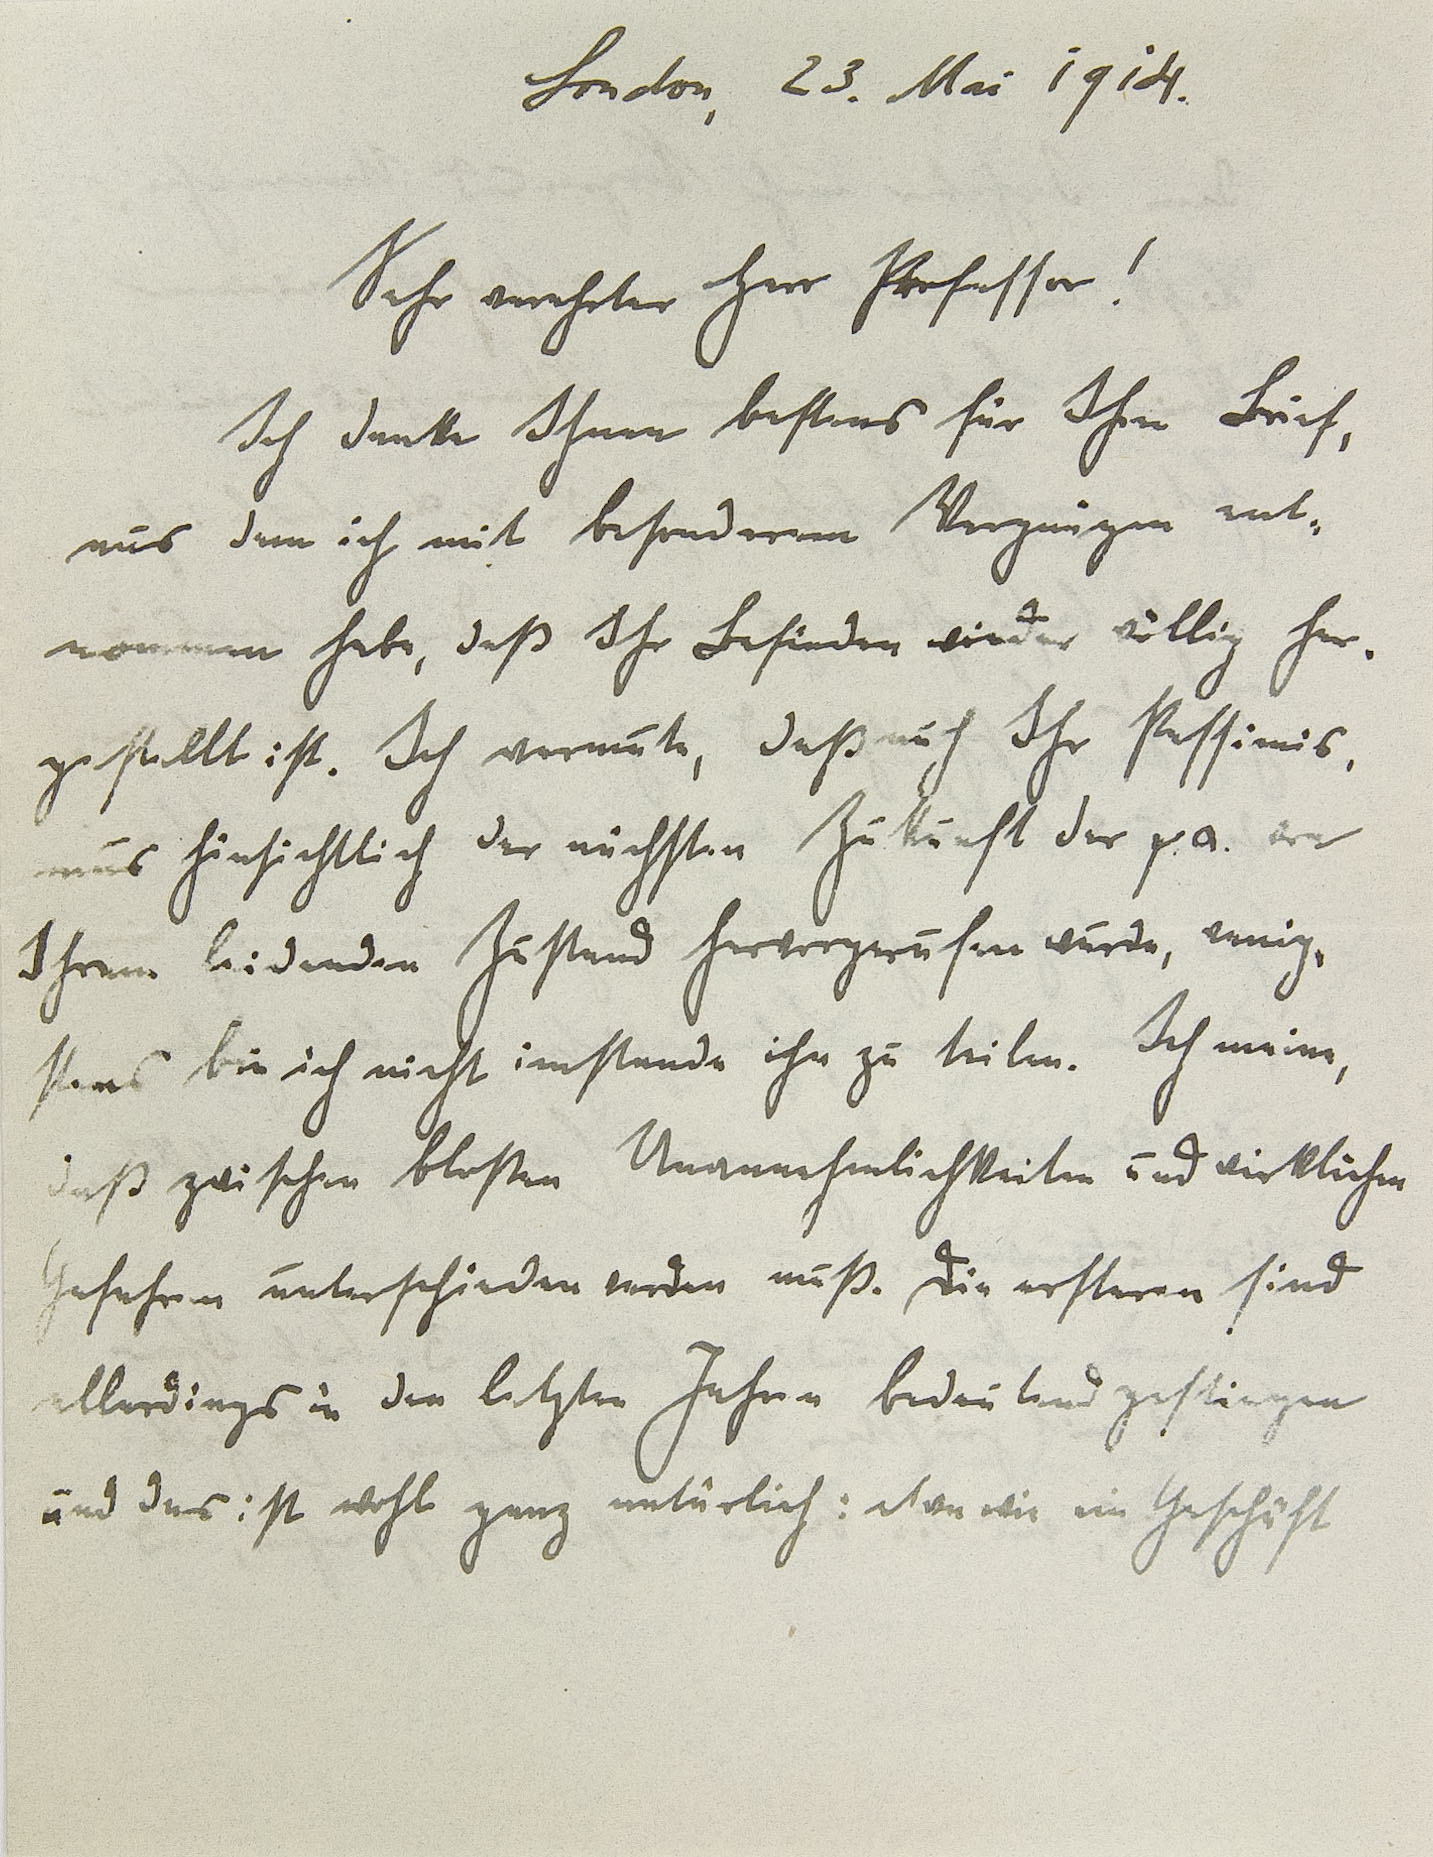 London, 23. Mai 1914.
Sehr verehrter Herr Professor!
Ich danke Ihnen bestens für Ihren Brief,
aus dem ich mit besonderem Vergnügen ent-
nommen habe, daß Ihr Befinden wieder völlig her-
gestellt ist. Ich vermute, daß auch Ihr Pessimis-
mus hinsichtlich der nächsten Zukunft der p.a. von
Ihrem leidenden Zustand hervorgerufen wurde, wenig-
stens bin ich nicht imstande ihn zu teilen. Ich meine,
daß zwischen bloßen Unannehmlichkeiten und wirklichen
Gefahren unterschieden werden muß. Die ersteren sind
allerdings in den letzten Jahren bedeutend gestiegen
und das ist wohl ganz natürlich: etwa wie ein Geschäft